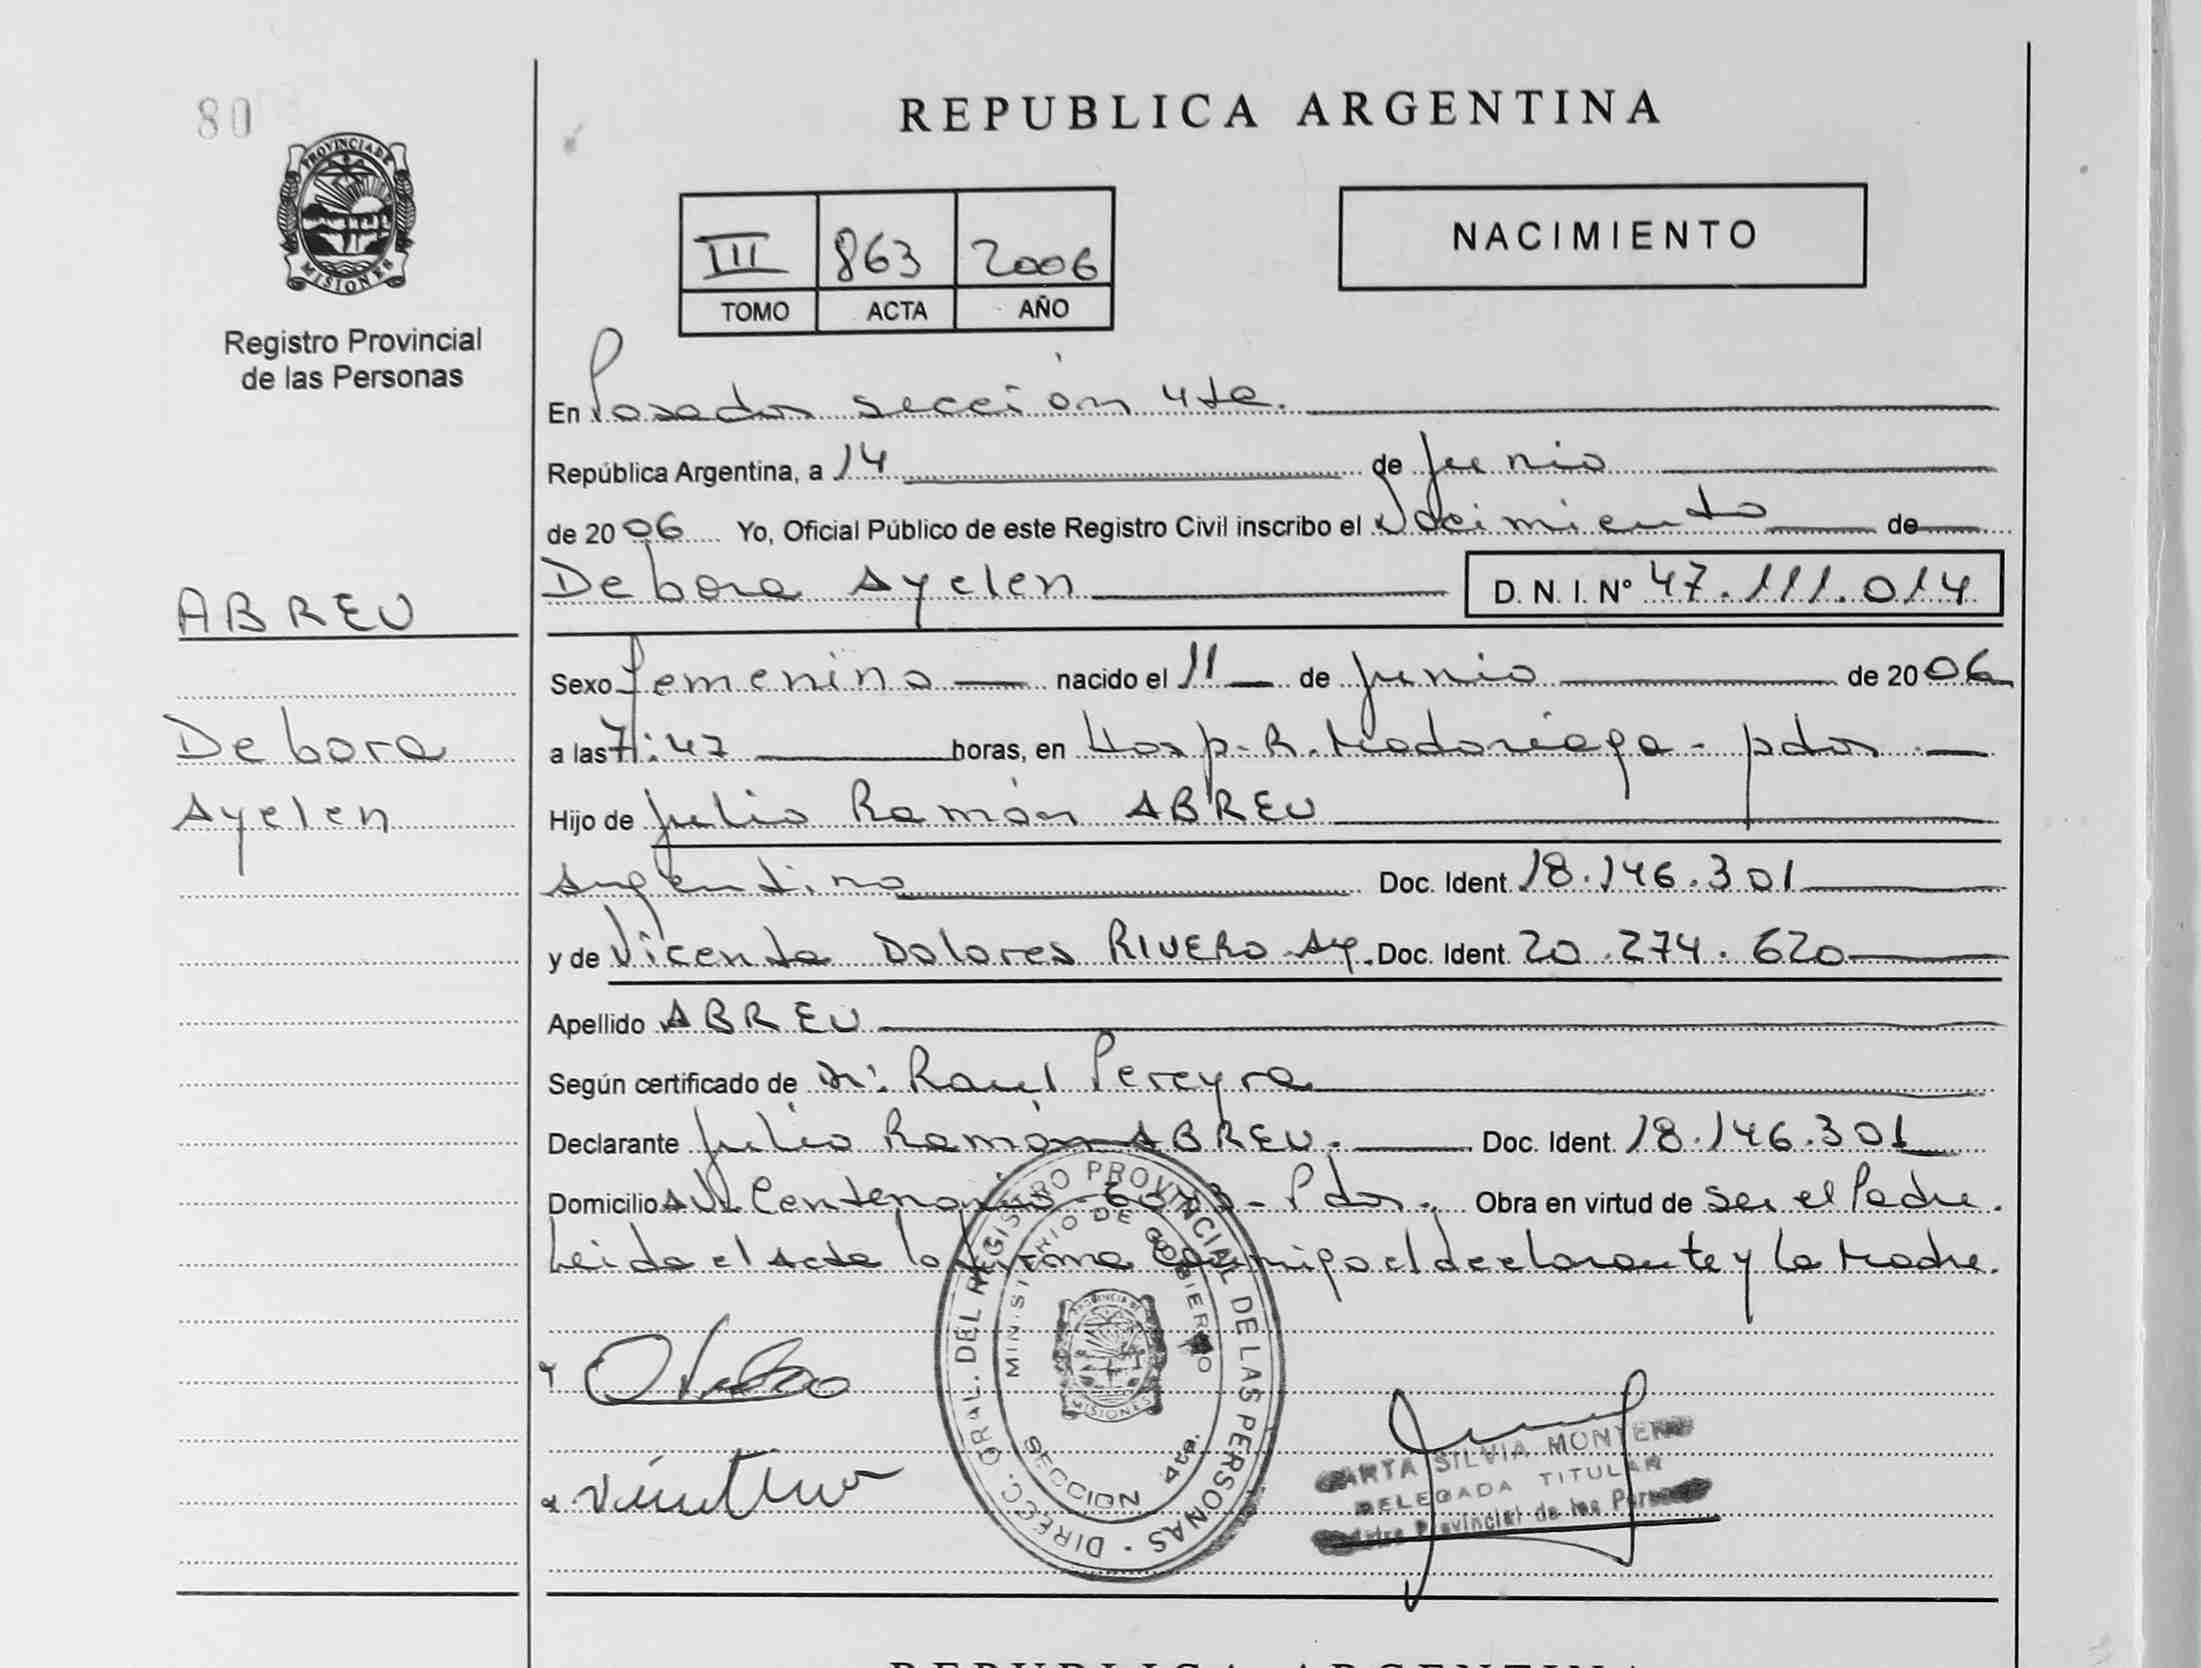 80
PROVINCIA DE
MISIONES
Registro Provincial
de las Personas
REPUBLICA ARGENTINA
III 863 2006
TOMO ACTA AÑO
NACIMIENTO
En Posadas sección 4ta.
República Argentina, a 14 de Junio
de 2006 Yo, Oficial Público de este Registro Civil inscribo el Nacimiento de
ABREU
Debora Ayelen D. N. I. Nº 47.111.014
Sexo femenino nacido el 11 de Junio de 2006
Debora
a las 7:47 horas, en Hosp. R. Madariaga - pdas
Ayelen
Hijo de Julio Ramón ABREU
Argentino Doc. Ident. 18.146.301
y de Vicenta Dolores RIVERO Ag. Doc. Ident. 20.274.620
Apellido ABREU
Según certificado de Raul Pereyra
Declarante Julio Ramón ABREU. Doc. Ident. 18.146.301
Domicilio Av. Centenario - Pdas. Obra en virtud de ser el Padre.
Leida el Acta la firma conmigo el declarante y la Madre.
DIRECC. GRAL. DEL REGISTRO PROVINCIAL DE LAS PERSONAS
MINISTERIO DE GOBIERNO
PROVINCIA DE
MISIONES
SECCION 4ta.
MARTA SILVIA MONTERO
DELEGADA TITULAR
Registro Provincial de las Personas
REPUBLICA ARGENTINA